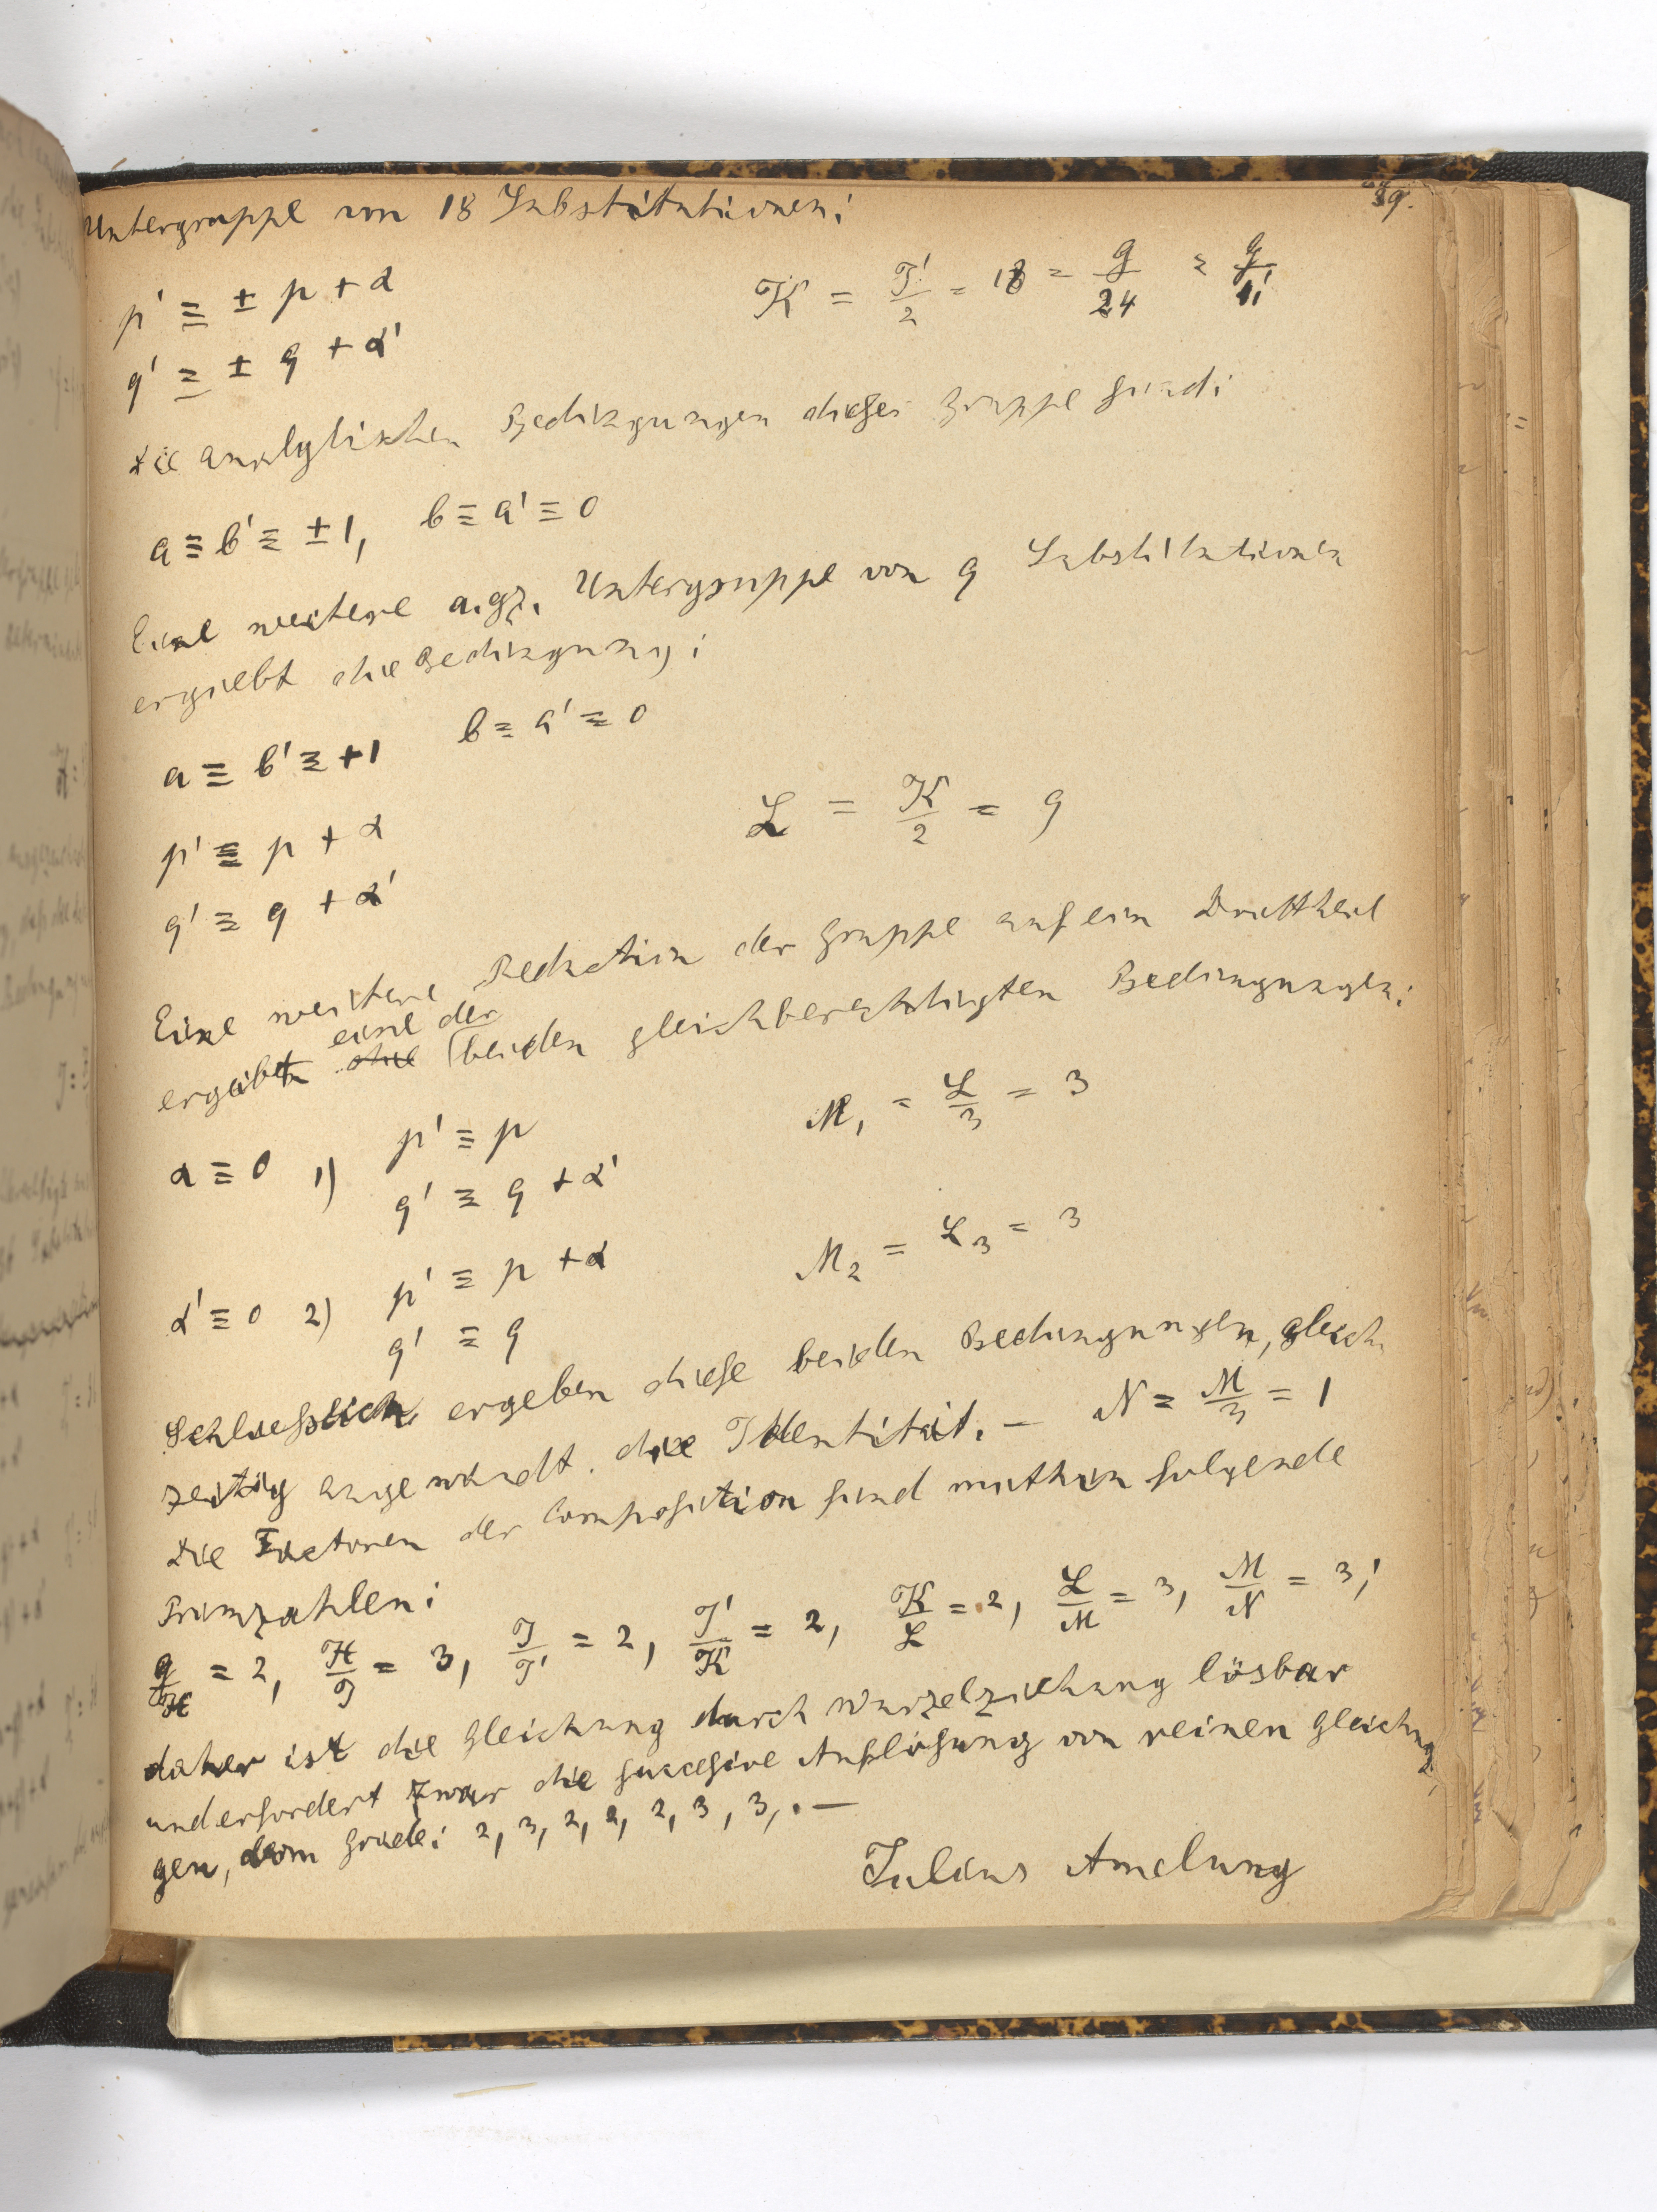 89.
Untergruppe von 18 Substitutionen:
p' ≡ ± p + α
K = J'/2 = 18 = G/24
q' ≡ ± q + α'
Die analytischen Bedingungen dieser Gruppe sind:
a ≡ b' ≡ ±1, b ≡ a' ≡ 0
Eine weitere a.gz. Untergruppe von 9 Substitutionen
ergiebt die Bedingung:
a ≡ b' ≡ +1 b ≡ a' ≡ 0
p' ≡ p + α
L = K/2 = 9
q' ≡ q + α'
Eine weitere Reduction der Gruppe auf ein Drittheil
eine der
ergiebt die beiden gleichberechtigten Bedingungen:
α ≡ 0 1) p' ≡ p
M₁ = L/3 = 3
q' ≡ q + α'
α' ≡ 0 2) p' ≡ p + α
M₂ = L/3 = 3
q' ≡ q
Schliesslich ergeben diese beiden Bedingungen, gleich
zeitig angewandt die Identität. — N = M/3 = 1
Die Factoren der Composition sind mithin folgende
Primzahlen:
G/H = 2, H/J = 3, J/J' = 2, J'/K = 2, K/L = 2, L/M = 3, M/N = 3;
daher ist die Gleichung durch Wurzelziehung lösbar
und erfordert zwar die succesive Auflösung von reinen Gleichun
gen, vom Grade: 2, 3, 2, 2, 2, 3, 3, . —
Julius Amelung